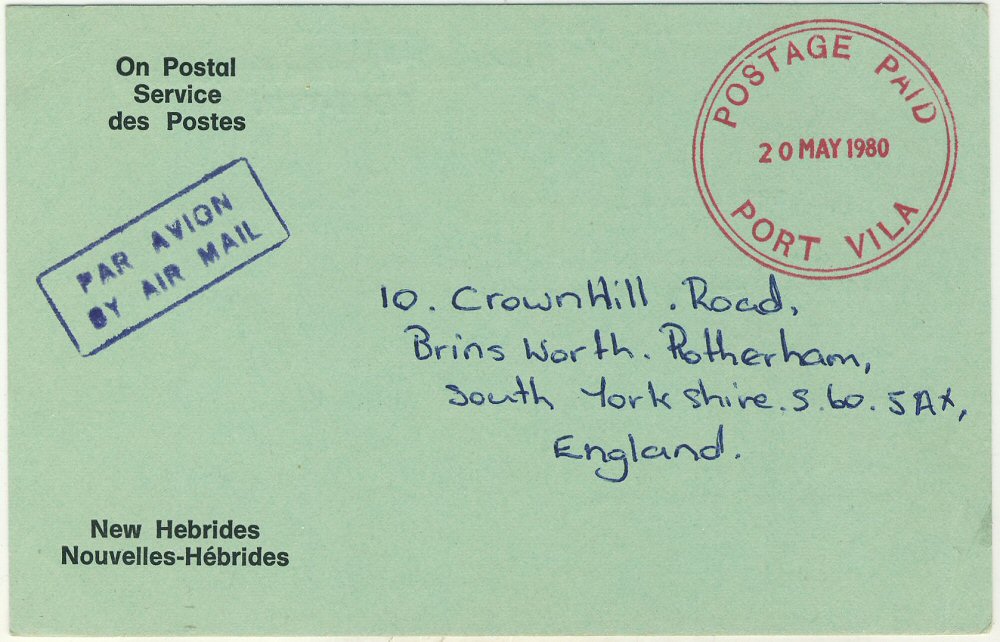 On Postal
Service
des Postes
POSTAGE PAID
20 MAY 1980
PORT VILA
PAR AVION
BY AIR MAIL
10. Crown Hill. Road,
Brins Worth. Rotherham,
South Yorkshire. S. 60. 5AX,
England.
New Hebrides
Nouvelles-Hébrides